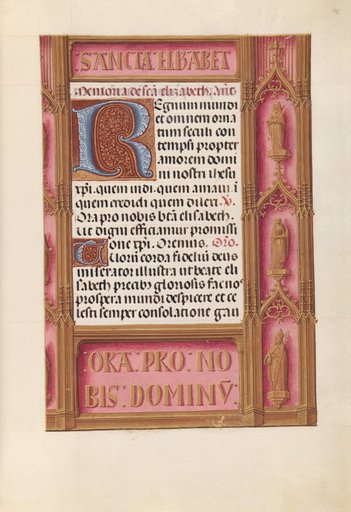 :SANCTA·ELIZABET
De memoria de scā elizabeth. Ant.
Regnum mundi
et omnem orna
tum seculi con
tempsi propter
amorem domi
ni nostri ihesu
xp̄i. quem uidi. quem amaui. ī
quem credidi quem dilexi. V.
Ora pro nobis btā elisabeth.
ut digni efficiamur promissi
one xp̄i. Oremus. Oro.
Tuorū corda fidelium deus
miserator illustra et beate eli
sabeth precibꝫ gloriosis fac nos
prospera mundi despicere et ce
lesti semper consolatione gau
:ORA:PRO:NO
BIS:DOMINV̄: